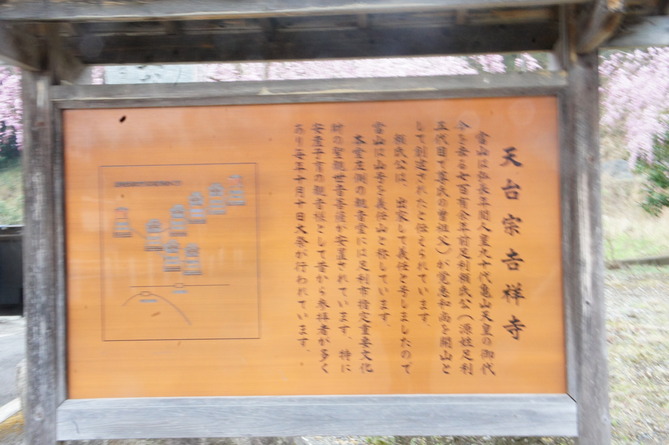 天台宗吉祥寺
当山は弘長年間人皇九十代亀山天皇の御代
今を去る七百有余年前足利頼氏公(源姓足利
五代目で尊氏の曽祖父)が覚恵和尚を開山と
して創建されたと伝えられています。
頼氏公は、出家して義任と号しましたので
当山は山号を義任山と称しています。
本堂左側の観音堂には足利市指定重要文化
財の聖観世音菩薩が安置されています。特に
安産子育の観音様として昔から参拝者が多く
あり毎年十月十日大祭が行われています。